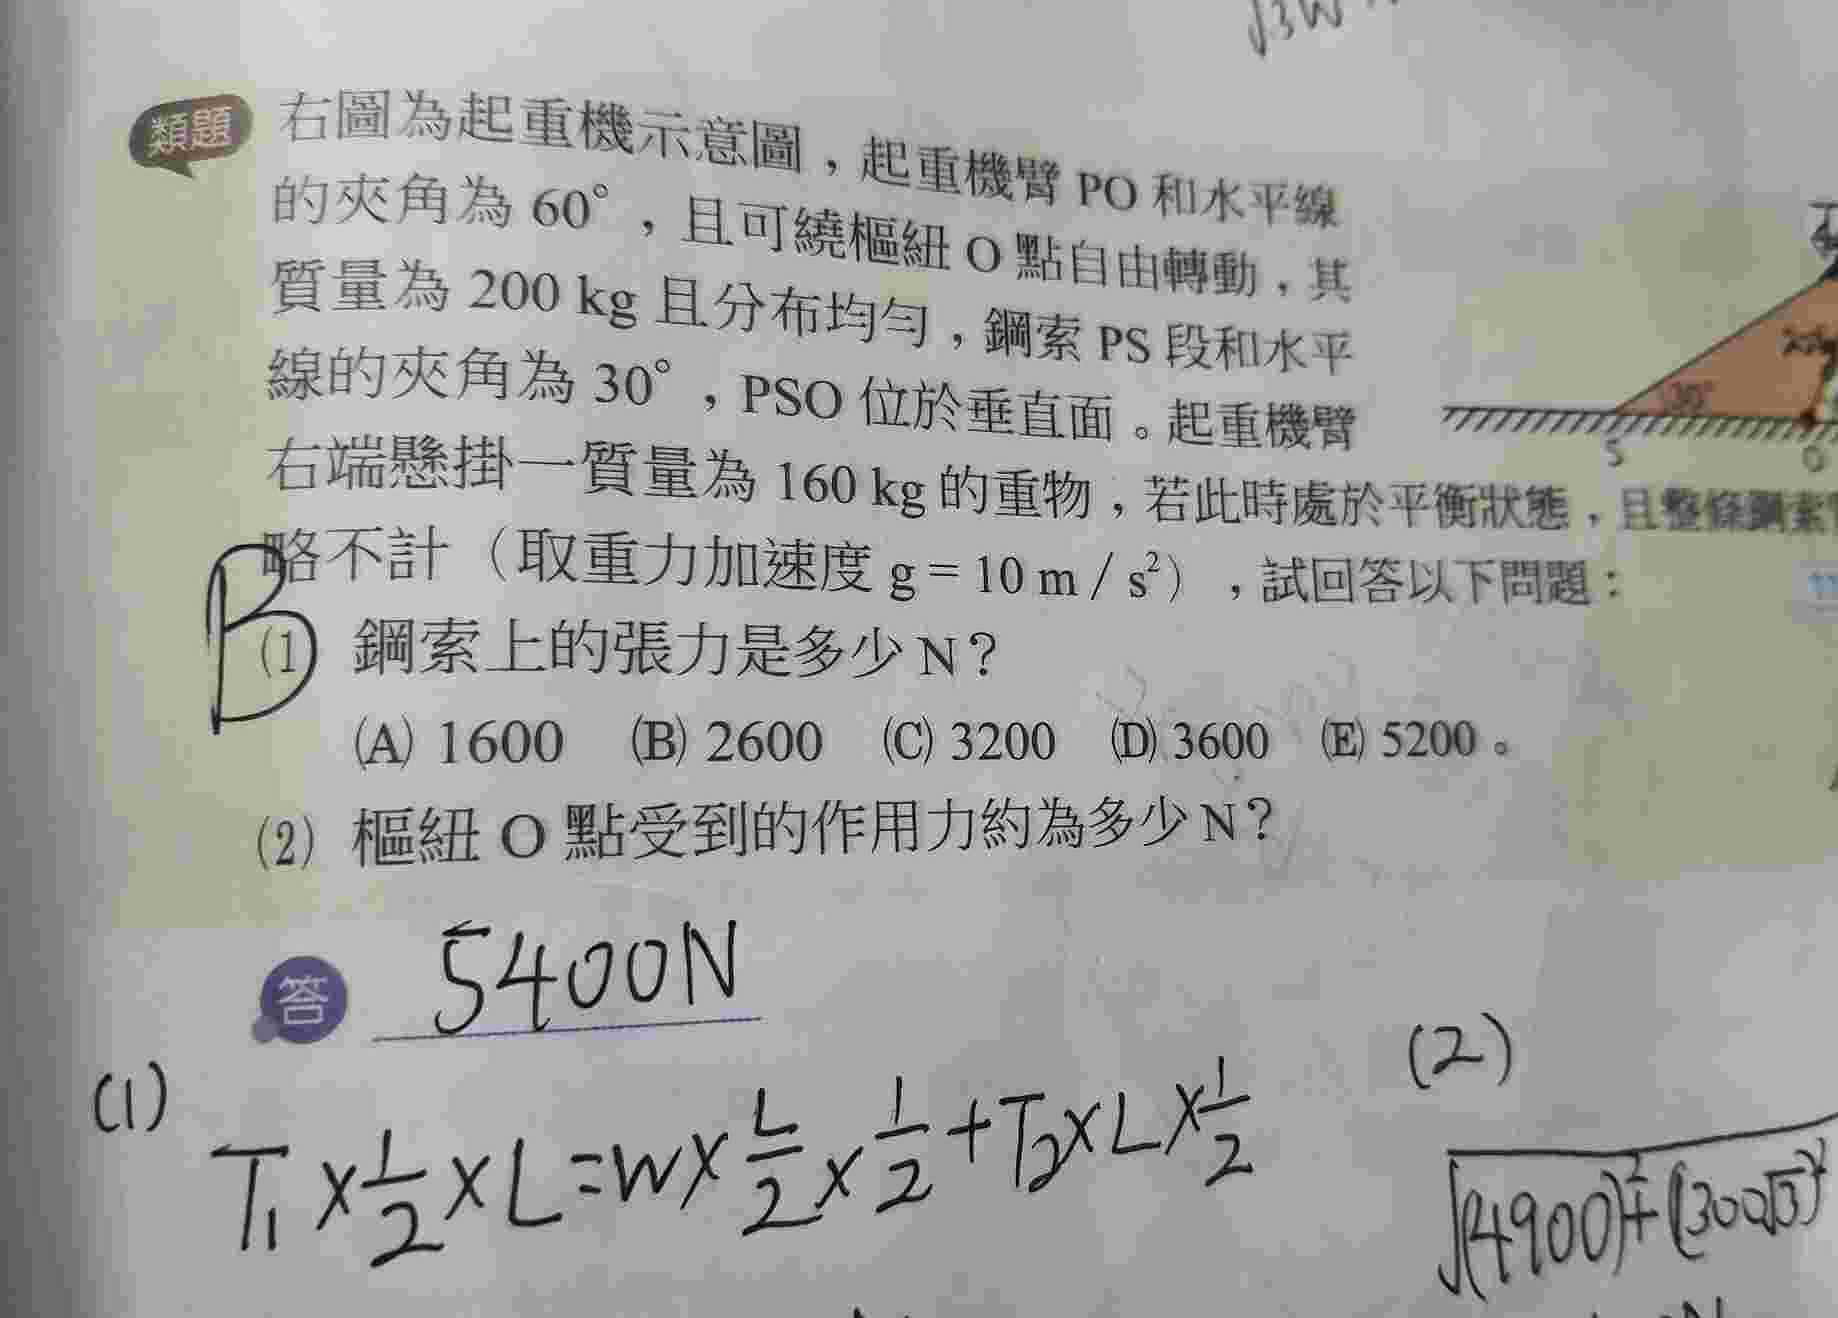 √3W
類題
右圖為起重機示意圖，起重機臂 PO 和水平線
的夾角為 60°，且可繞樞紐 O 點自由轉動，其
質量為 200 kg 且分布均勻，鋼索 PS 段和水平
線的夾角為 30°，PSO 位於垂直面。起重機臂
右端懸掛一質量為 160 kg 的重物，若此時處於平衡狀態，且整條鋼索
略不計（取重力加速度 g = 10 m / s²），試回答以下問題：
30°
S
O
B
(1) 鋼索上的張力是多少 N？
(A) 1600 (B) 2600 (C) 3200 (D) 3600 (E) 5200。
(2) 樞紐 O 點受到的作用力約為多少 N？
答 5400N
(1)
T₁ × 1/2 × L = W × L/2 × 1/2 + T₂ × L × 1/2
(2)
√(4900)² + (300√3)²